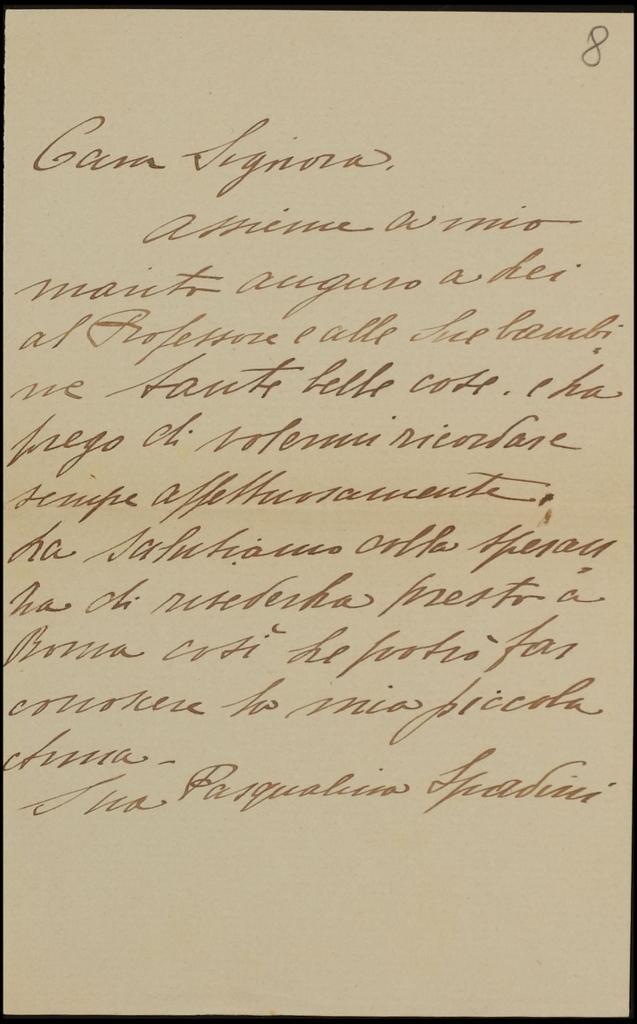 8
Cara Signora.
Assieme a mio
marito auguro a Lei
al Professore e alle Sue bambi
ne tante belle cose. e La
prego di volermi ricordare
sempre affettuosamente.
La salutiamo colla speran
za di rivederLa presto a
Roma così Le potrò far
conoscere la mia piccola
Anna -
Sua Pasqualina Spadini